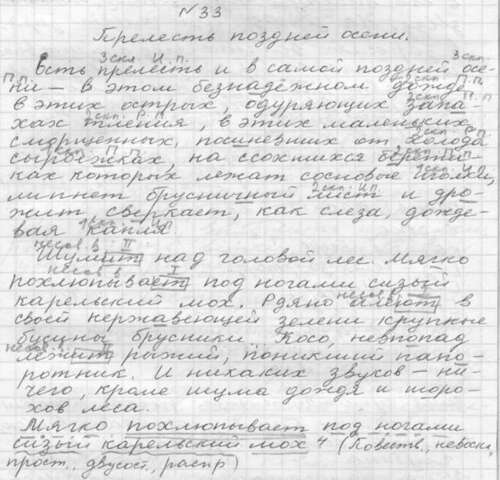 №33
Прелесть поздней осени.
3скл И.п. 3скл
Есть прелесть и в самой поздней осе-
П.п. 2скл П.п.
ни – в этом безнадежном дожде,
2скл П.п.
в этих острых, одуряющих запа-
2скл Р.п.
хах тления, в этих маленьких,
2скл Р.п.
сморщенных, посиневших от холода
сыроежках, на ссохшихся беретик-
ках которых лежат сосновые иголки,
2скл И.п.
липнет брусничный лист и дро-
жит, сверкает, как слеза, дожде-
вая капля.
несов.в II
Шумит над головой лес. Мягко
несов.в I
похлюпывает под ногами сизый
карельский мох. Рдяно алеют в
своей нержавеющей зелени крупные
бусины брусники. Косо, невпопад
лежит рыжий, поникший папо-
ротник. И никаких звуков – ни-
чего, кроме шума дождя и шоро-
хов леса.
Мягко похлюпывает под ногами
сизый карельский мох 4 (Повеств., невоскл,
прост., двусост., распр)